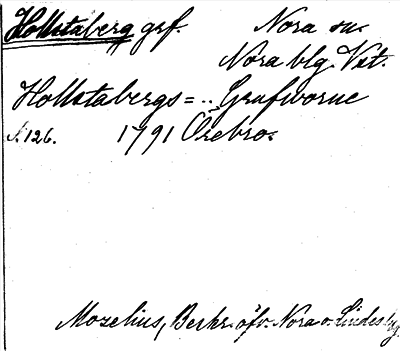 Hollstaberg grf. Nora sn.
Nora blg Vst.
Hollstabergs= Grufworne
s. 126. 1791 Örebro.
Mozelius, Beskr. öfv. Nora o. Lindes blg.